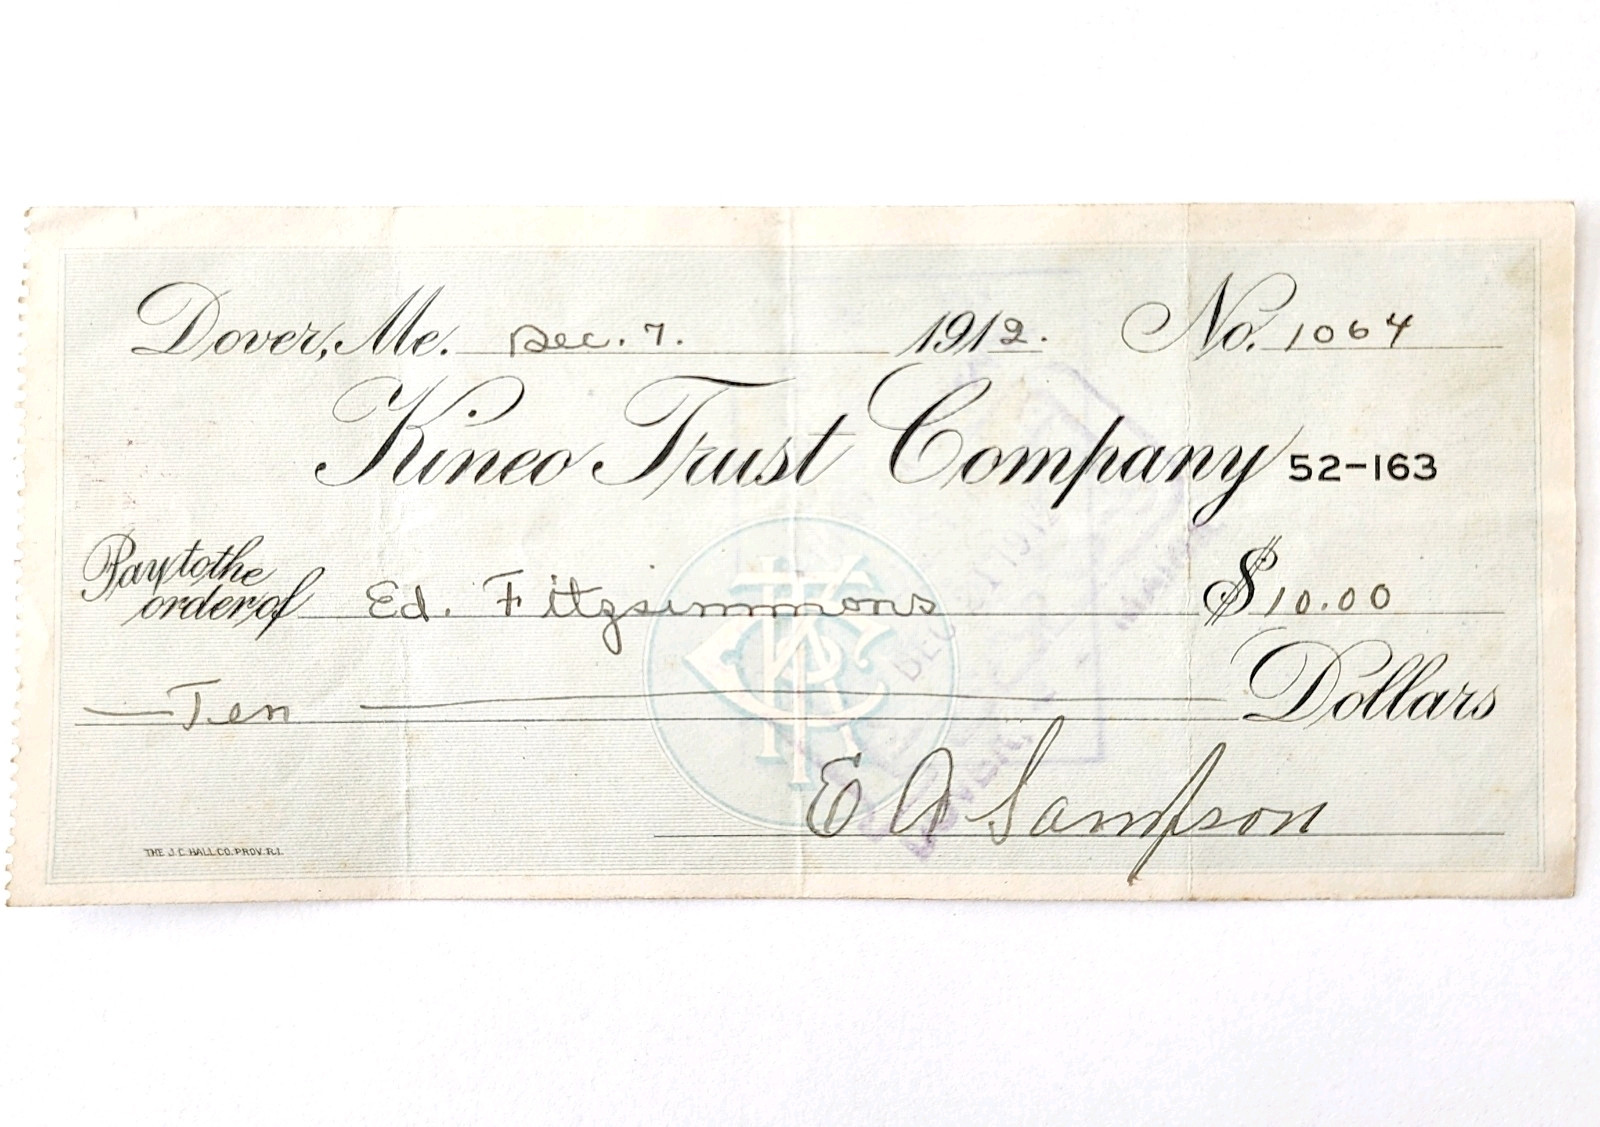 Dover, Me. Dec. 7. 1912. No. 1064
Kineo Trust Company 52-163
Pay to the
order of Ed. Fitzsimmons $10.00
Ten Dollars
E A Sampson
THE J.C. HALL CO. PROV. R.I.
KTC
DEC